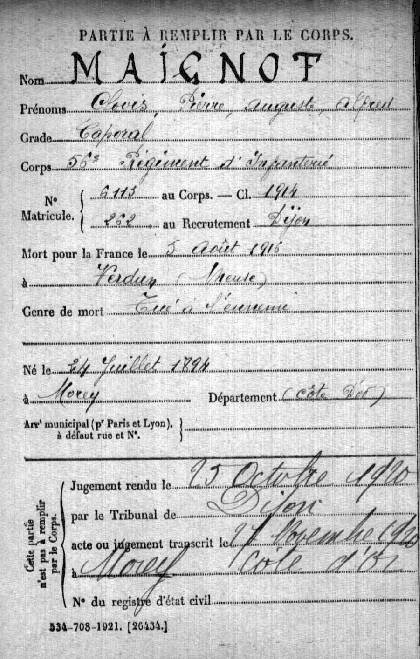 PARTIE À REMPLIR PAR LE CORPS.
Nom MAIGNOT
Prénoms Clovis, Pierre, Auguste, Alfred
Grade Caporal
Corps 56e Régiment d'Infanterie
N° Matricule. { 6113 au Corps. — Cl. 1914
262 au Recrutement Dijon
Mort pour la France le 5 Août 1916
à Verdun (Meuse)
Genre de mort Tué à l'ennemi
Né le 24 Juillet 1894
à Morey Département (Côte d'Or)
Arrt municipal (pr Paris et Lyon), à défaut rue et N°.
Cette partie n'est pas à remplir par le Corps.
Jugement rendu le 25 Octobre 1920
par le Tribunal de Dijon
acte ou jugement transcrit le 27 Novembre 1920
à Morey Côte d'Or
N° du registre d'état civil
534-708-1921. [26434.]